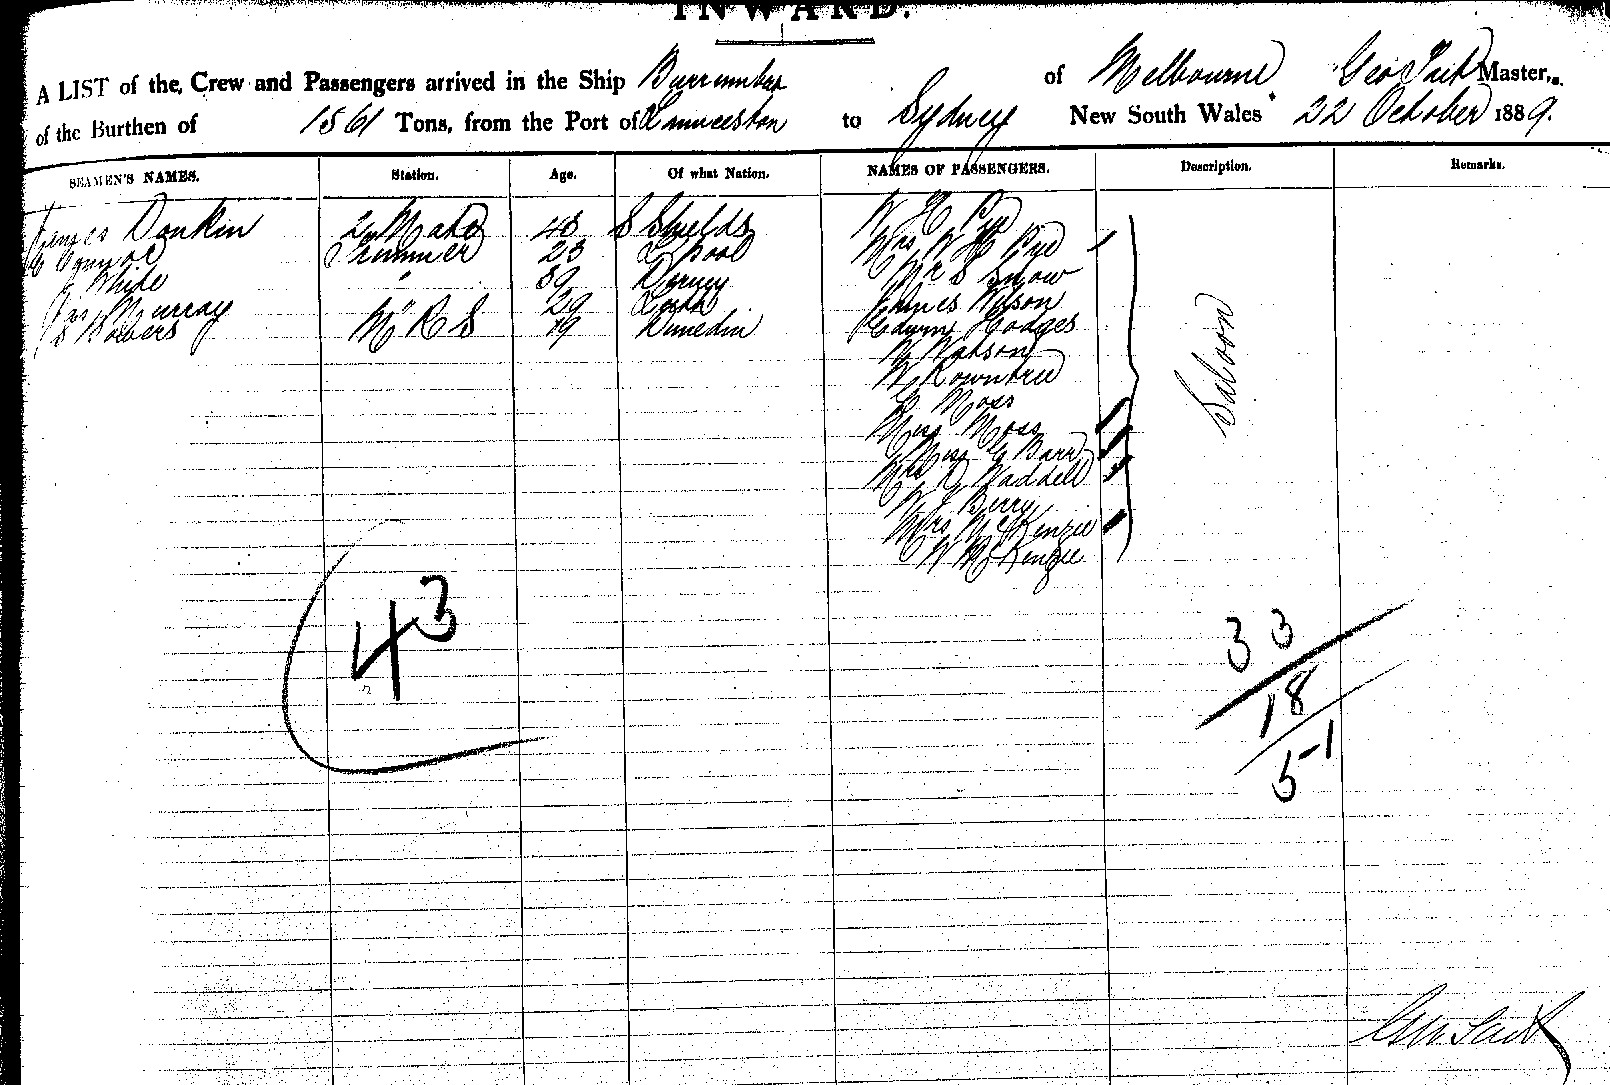 INWARD.
A LIST of the Crew and Passengers arrived in the Ship Burrumbeet of Melbourne Geo Tait Master,
of the Burthen of 1561 Tons, from the Port of Launceston to Sydney New South Wales 22 October 1889.
SEAMEN'S NAMES. Station. Age. Of what Nation. NAMES OF PASSENGERS. Description. Remarks.
James Donkin 2nd Mate 48 S Shields W H Pye
Trimmer 23 L Pool Mrs W H Pye
J White " 39 Mr S Snow
Jas Murray " 29 Leith James Wilson
Bowers M R S 19 Dunedin Hodges
W Watson
W Rowntree
Moss
Miss Moss
Miss Barr
Mrs D Waddell
W J Berry
Mrs McKenzie
W McKenzie
Saloon
43
33
18
51
Geo Tait